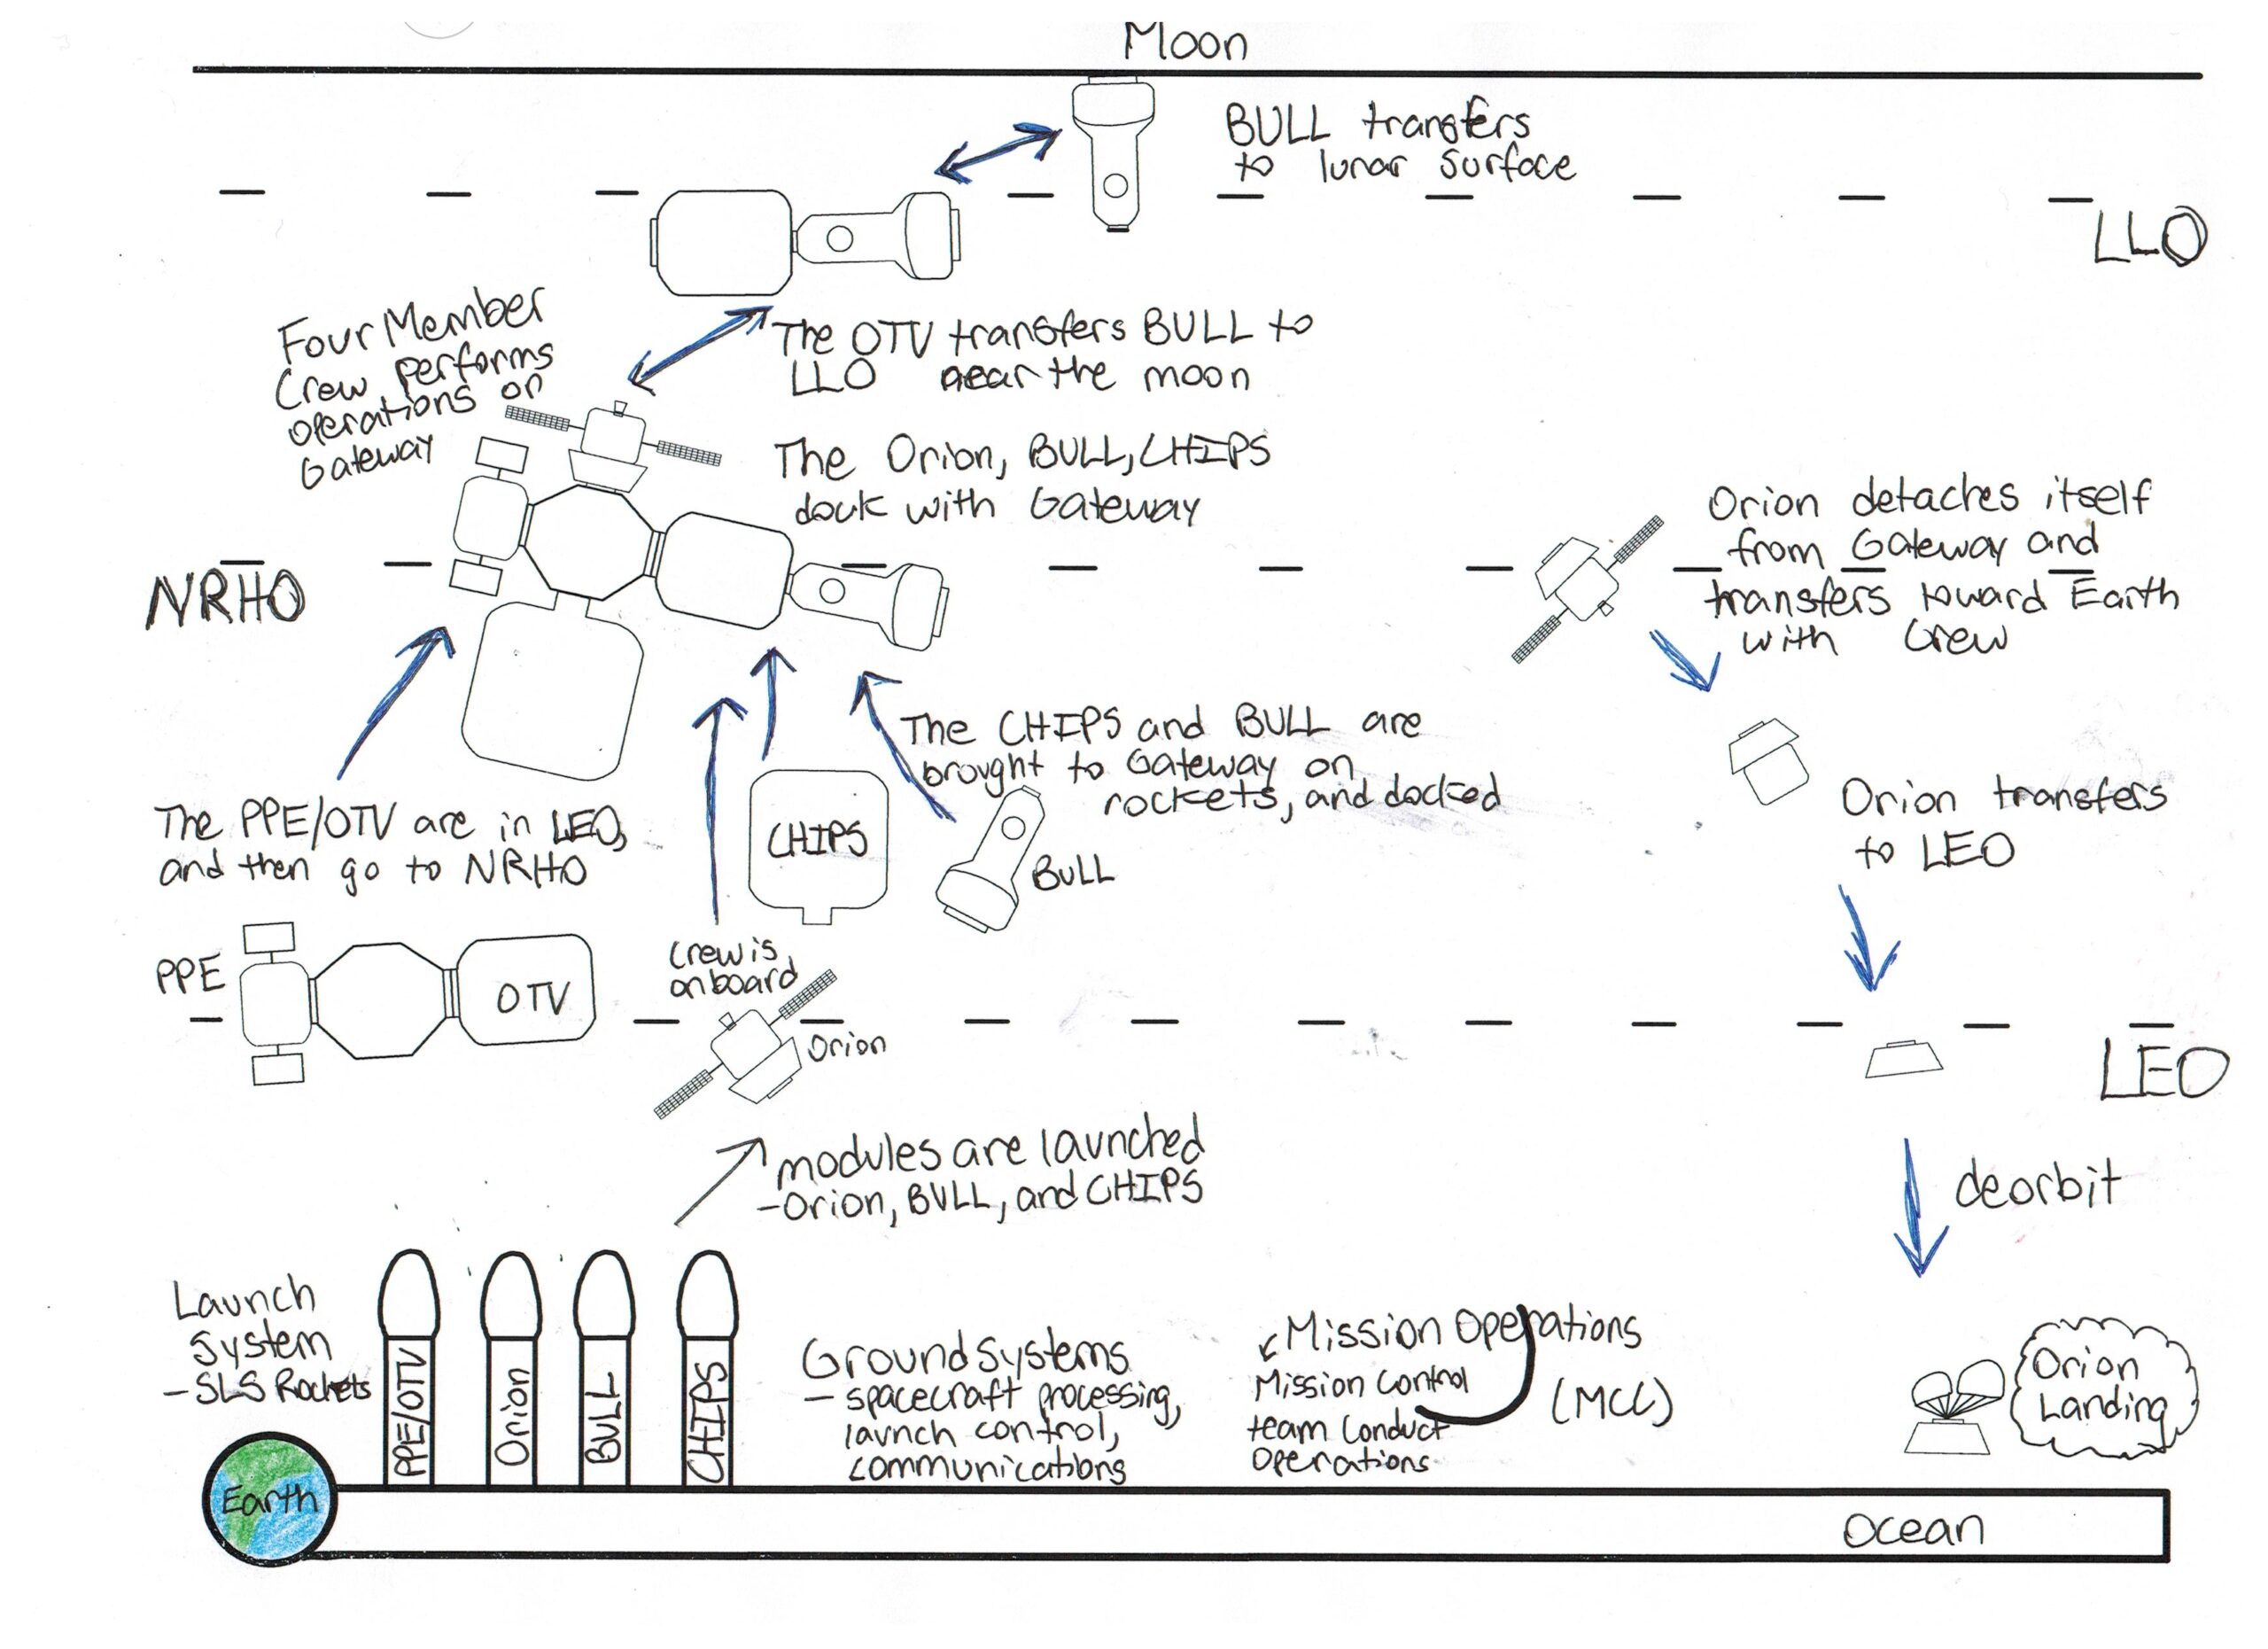 Moon
BULL transfers
to lunar surface
LLO
Four Member
Crew performs
operations on
Gateway
The OTV transfers BULL to
LLO near the moon
The Orion, BULL, CHIPS
dock with Gateway
NRHO
Orion detaches itself
from Gateway and
transfers toward Earth
with Crew
The CHIPS and BULL are
brought to Gateway on
rockets, and docked
CHIPS
BULL
The PPE/OTV are in LEO,
and then go to NRHO
Orion transfers
to LEO
PPE
OTV
Crew is
onboard
Orion
LEO
modules are launched
-Orion, BULL, and CHIPS
deorbit
Launch
System
- SLS Rockets
PPE/OTV
Orion
BULL
CHIPS
Ground Systems
- spacecraft processing,
launch control,
communications
Mission Operations
Mission Control
team Conduct
Operations
(MCC)
Orion
Landing
Earth
Ocean